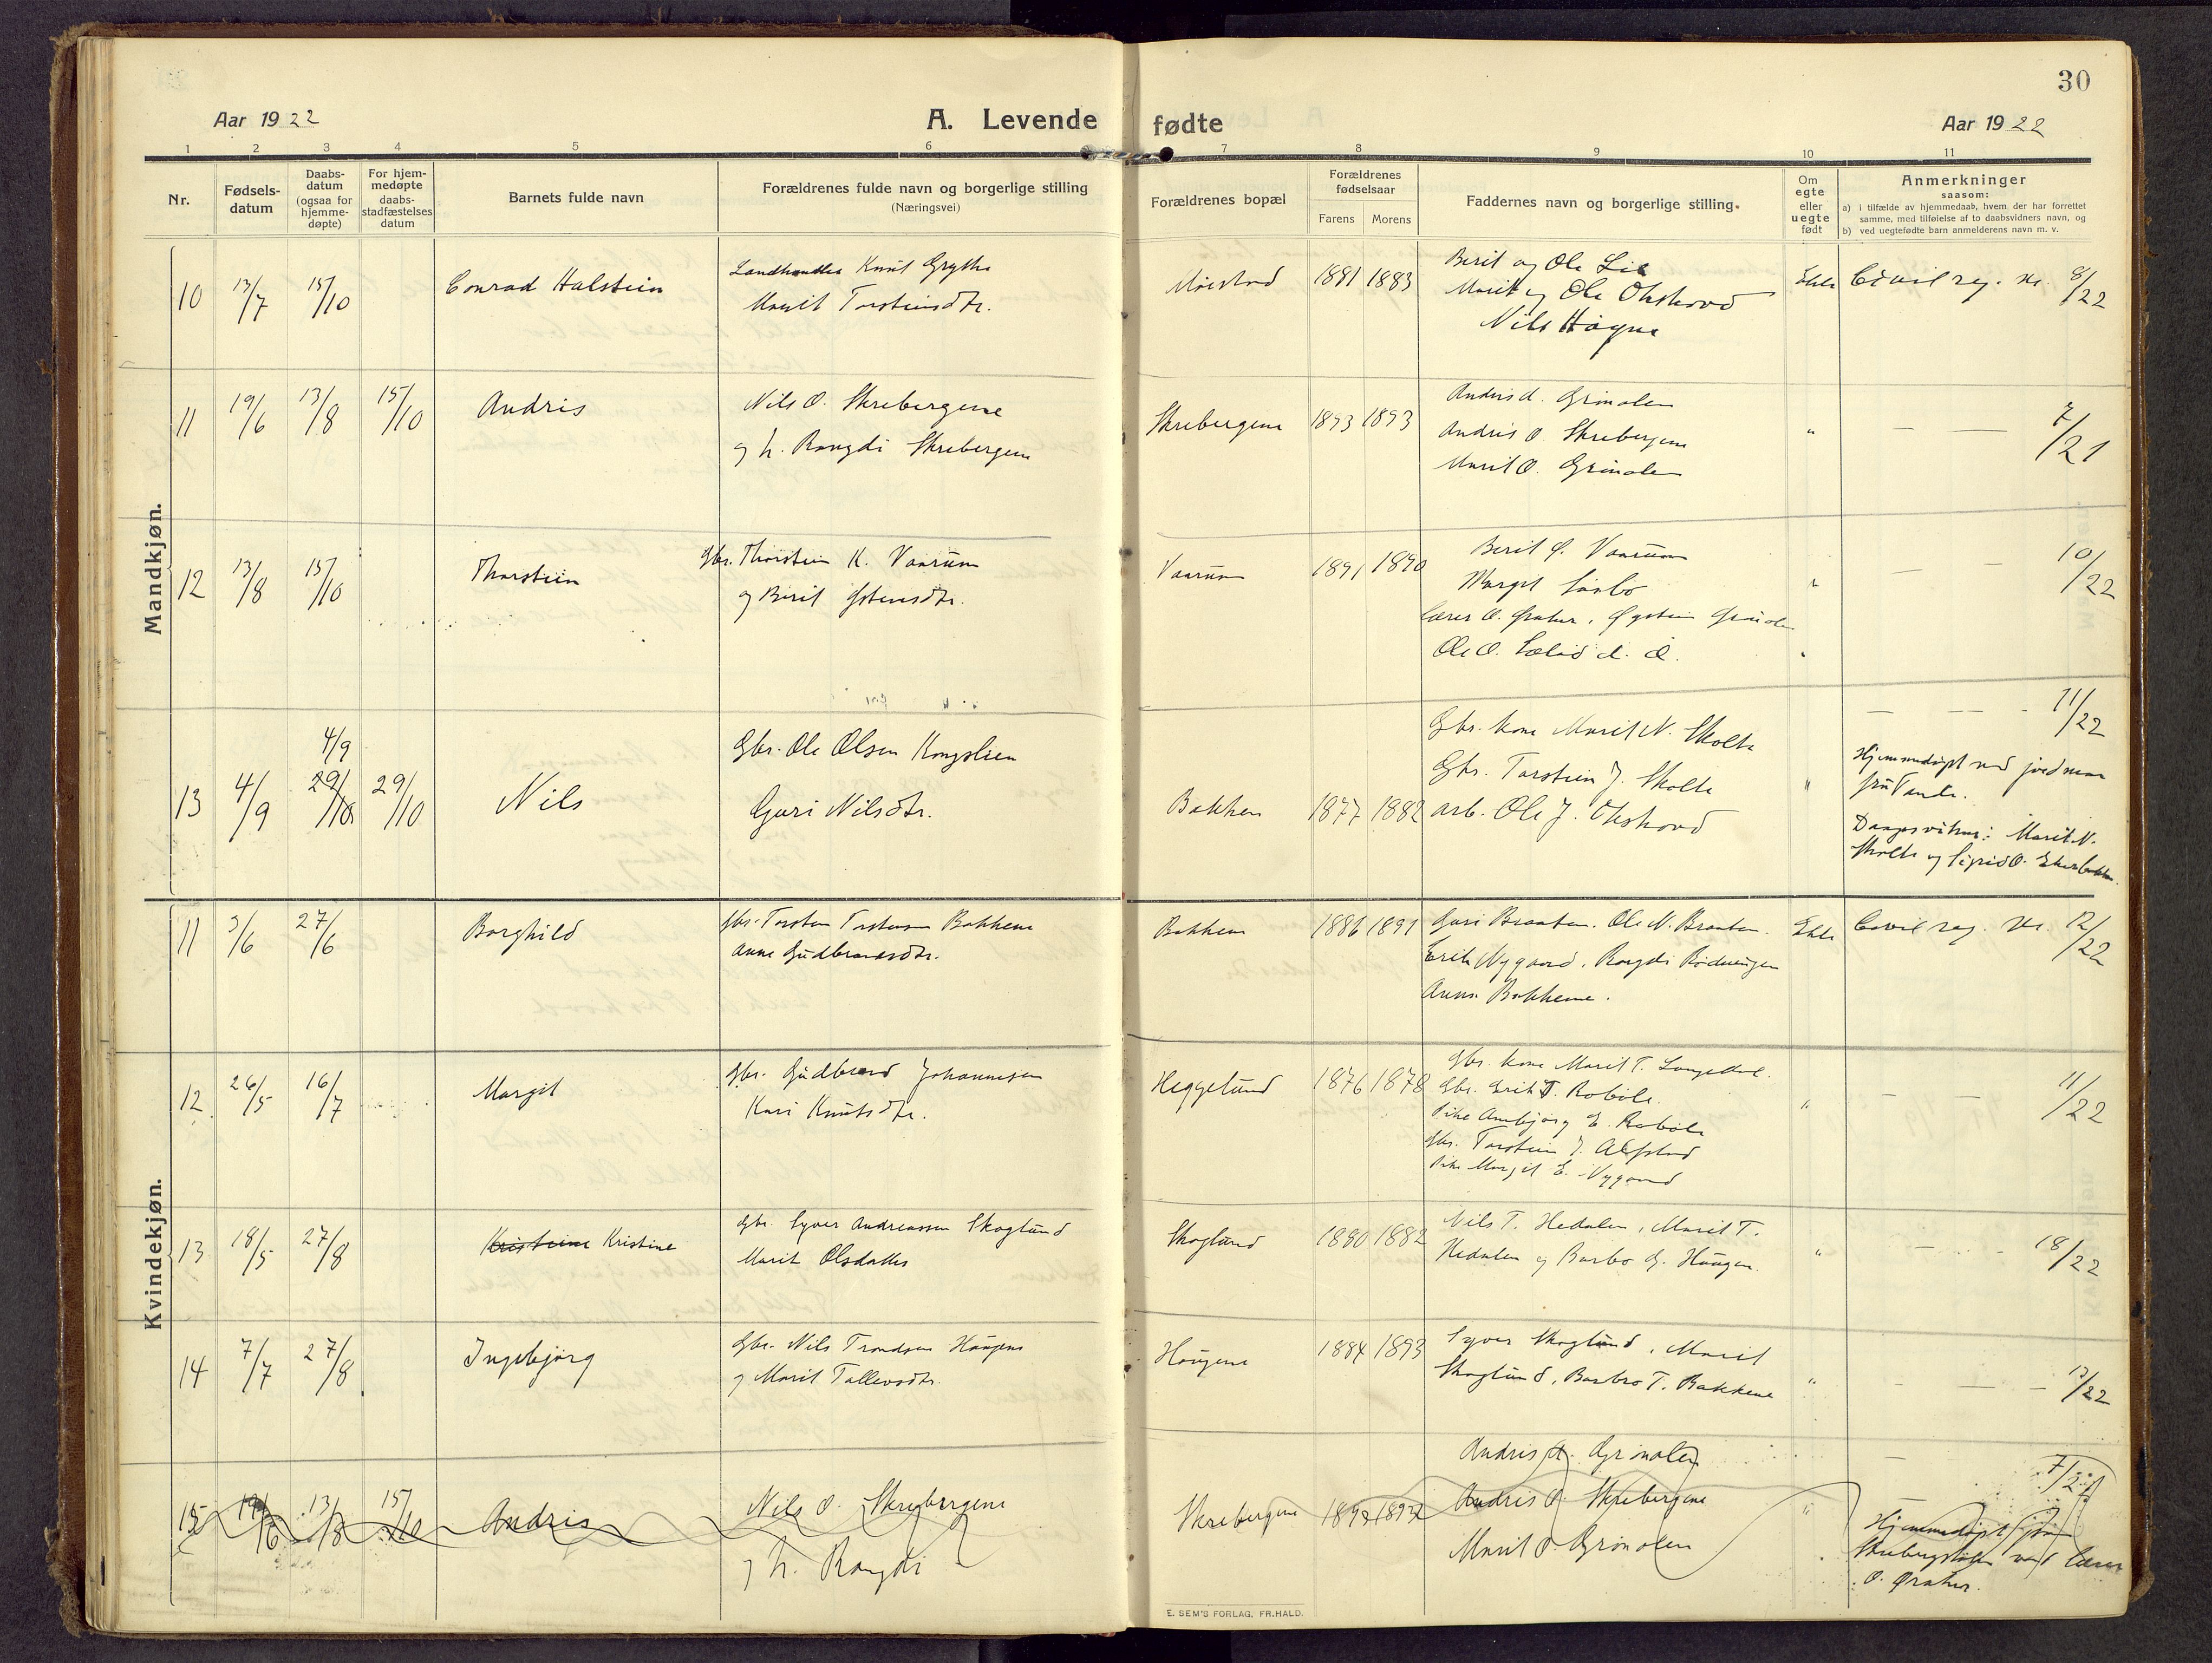 30
Aar 1922
A. Levende fødte
Aar 1922
1 2 3 4 5 6 7 8 9 10 11
Nr.
Fødsels-
datum
Daabs-
datum
(ogsaa for
hjemme-
døpte)
For hjem-
medøpte
daabs-
stadfæstelses
datum
Barnets fulde navn
Forældrenes fulde navn og borgerlige stilling
(Næringsvei)
Forældrenes bopæl
Forældrenes
fødselsaar
Farens Morens
Faddernes navn og borgerlige stilling.
Om
egte
eller
uegte
født
Anmerkninger
saasom:
a) i tilfælde av hjemmedaab, hvem der har forrettet
samme, med tilføielse af to daabsvidners navn, og
b) ved uegtefødte barn anmelderens navn m. v.
Mandkjøn.
10 13/7 15/10 Conrad Halstein
Landhandler Knut Grythe
Marit Torsteinsdtr.
1881 1883
Berit og Ole Lie
Marit og Ole Olshovd
Nils Høgne
Ekte Civil reg. nr. 8/22
11 19/6 13/8 15/10 Andris
Nils O. Skrebergene
og h. Rangdi Skrebergene
Skrebergene 1893 1893
Andris d. Grønolen
Andris O. Skrebergene
Marit O. Grønolen
" — — 7/21
12 13/8 15/10 Thorstein
Gbr. Thorstein K. Vaarum
og Berit Østensdtr.
Vaarum 1891 1890
Berit O. Vaarum
Margit
Lærer O.
Ole O.
" — — 10/22
13 4/9 4/9 29/10 29/10 Nils
Gbr. Ole Olsen Kongslien
Guri Nilsdtr.
Bakken 1877 1882
Gbr. kone Marit N. Skolte
Gbr. Torstein J. Skolte
arb. Ole J. Olshovd
" — — 11/22
Hjemmedøpt ved jordmor
fru
Daapsvitner: Marit N.
Skolte og Sigrid O.
Kvindekjøn.
11 3/6 27/6 Borghild
Gbr. Torsten Torstensen Bakkene
Anne Gudbrandsdtr.
Bakken 1886 1891
Guri Braaten. Ole N. Braaten.
Erik Nygaard. Rangdi
Anne Bakkene.
Ekte Civil reg. nr. 12/22
12 26/5 16/7 Margit
Gbr. Gudbrand Johannesen
Kari Knutsdtr.
Heggelund 1876 1878
Gbr. kone Marit T.
Gbr. Erik T. Robøle.
Pike Ambjørg E. Robøle
Gbr. Torstein J. Alfstad
Pike Margit E. Nygaard
" — — 11/22
13 18/5 27/8 Kristine Kristine
Gbr. Syver Andreassen Skoglund
Marit Olsdatter
Skoglund 1880 1882
Nils T. Hedalen, Marit T.
Hedalen og Barbo G. Haugen.
" — — 18/22
14 7/7 27/8 Ingebjørg
Gbr. Nils Trondsen Haugene
og Marit Tollevsdtr.
Haugene 1884 1893
Syver Skoglund, Marit
Skoglund, Barbro T. Bakkene
" — — 13/22
15 19/6 13/8 15/10 Andris
Nils O. Skrebergene
og h. Rangdi
Skrebergene 1893 1893
Andris d. Grønolen
Andris O. Skrebergene
Marit O. Grønolen
" 7/21
Hjemmedøpt
ved lærer
O.
E. SEM'S FORLAG, FR.HALD.